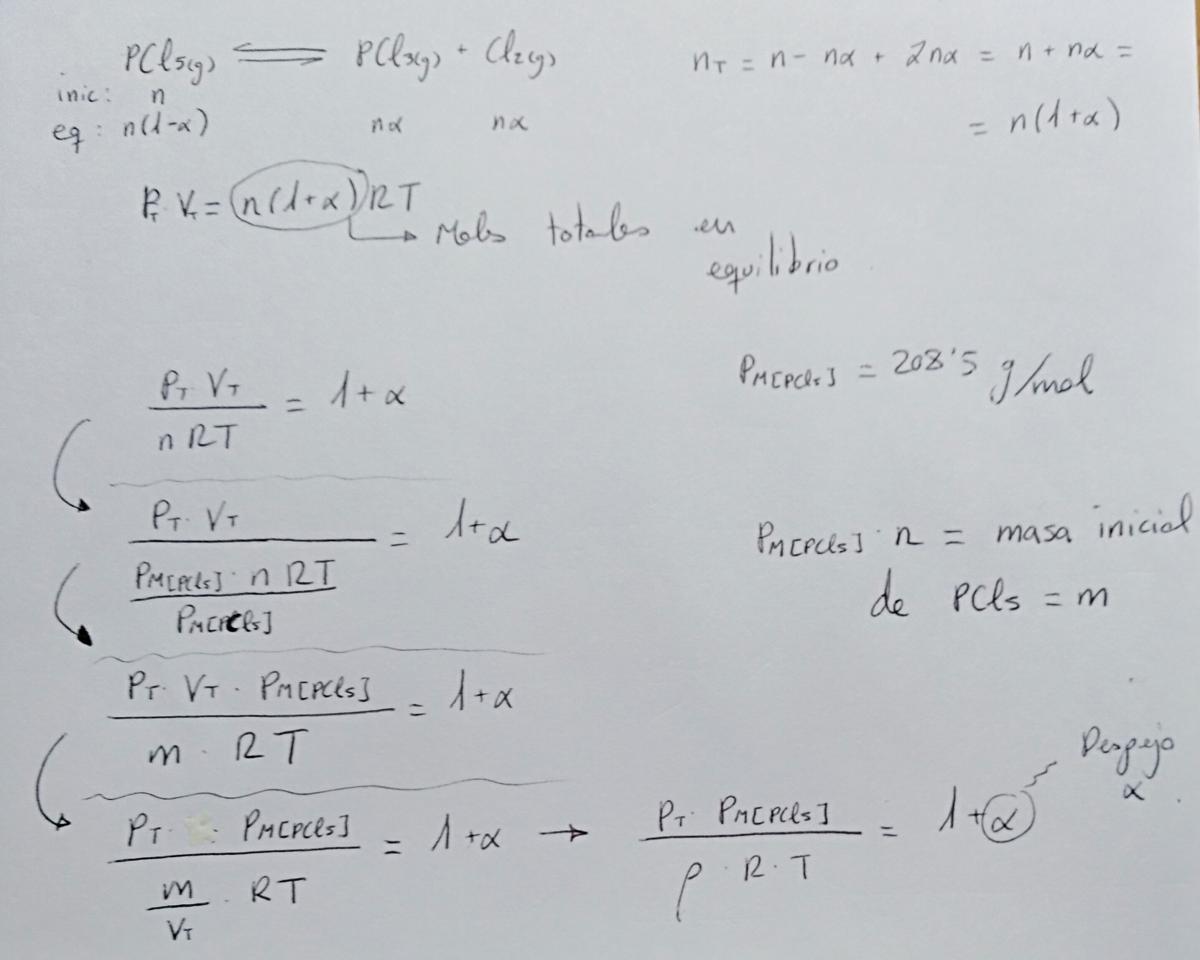 PCl5(g) ⇌ PCl3(g) + Cl2(g)
inic: n
eq: n(1-α) nα nα
nT = n - nα + 2nα = n + nα =
= n(1+α)
PT·VT = n(1+α)RT
→ Moles totales en
equilibrio
PT·VT / nRT = 1+α
PM[PCl5] = 208'5 g/mol
PT·VT / (PM[PCl5]·nRT / PM[PCl5]) = 1+α
PM[PCl5]·n = masa inicial
de PCl5 = m
PT·VT·PM[PCl5] / m·RT = 1+α
Despejo
α
PT·PM[PCl5] / (m/VT · RT) = 1+α → PT·PM[PCl5] / ρ·R·T = 1+α